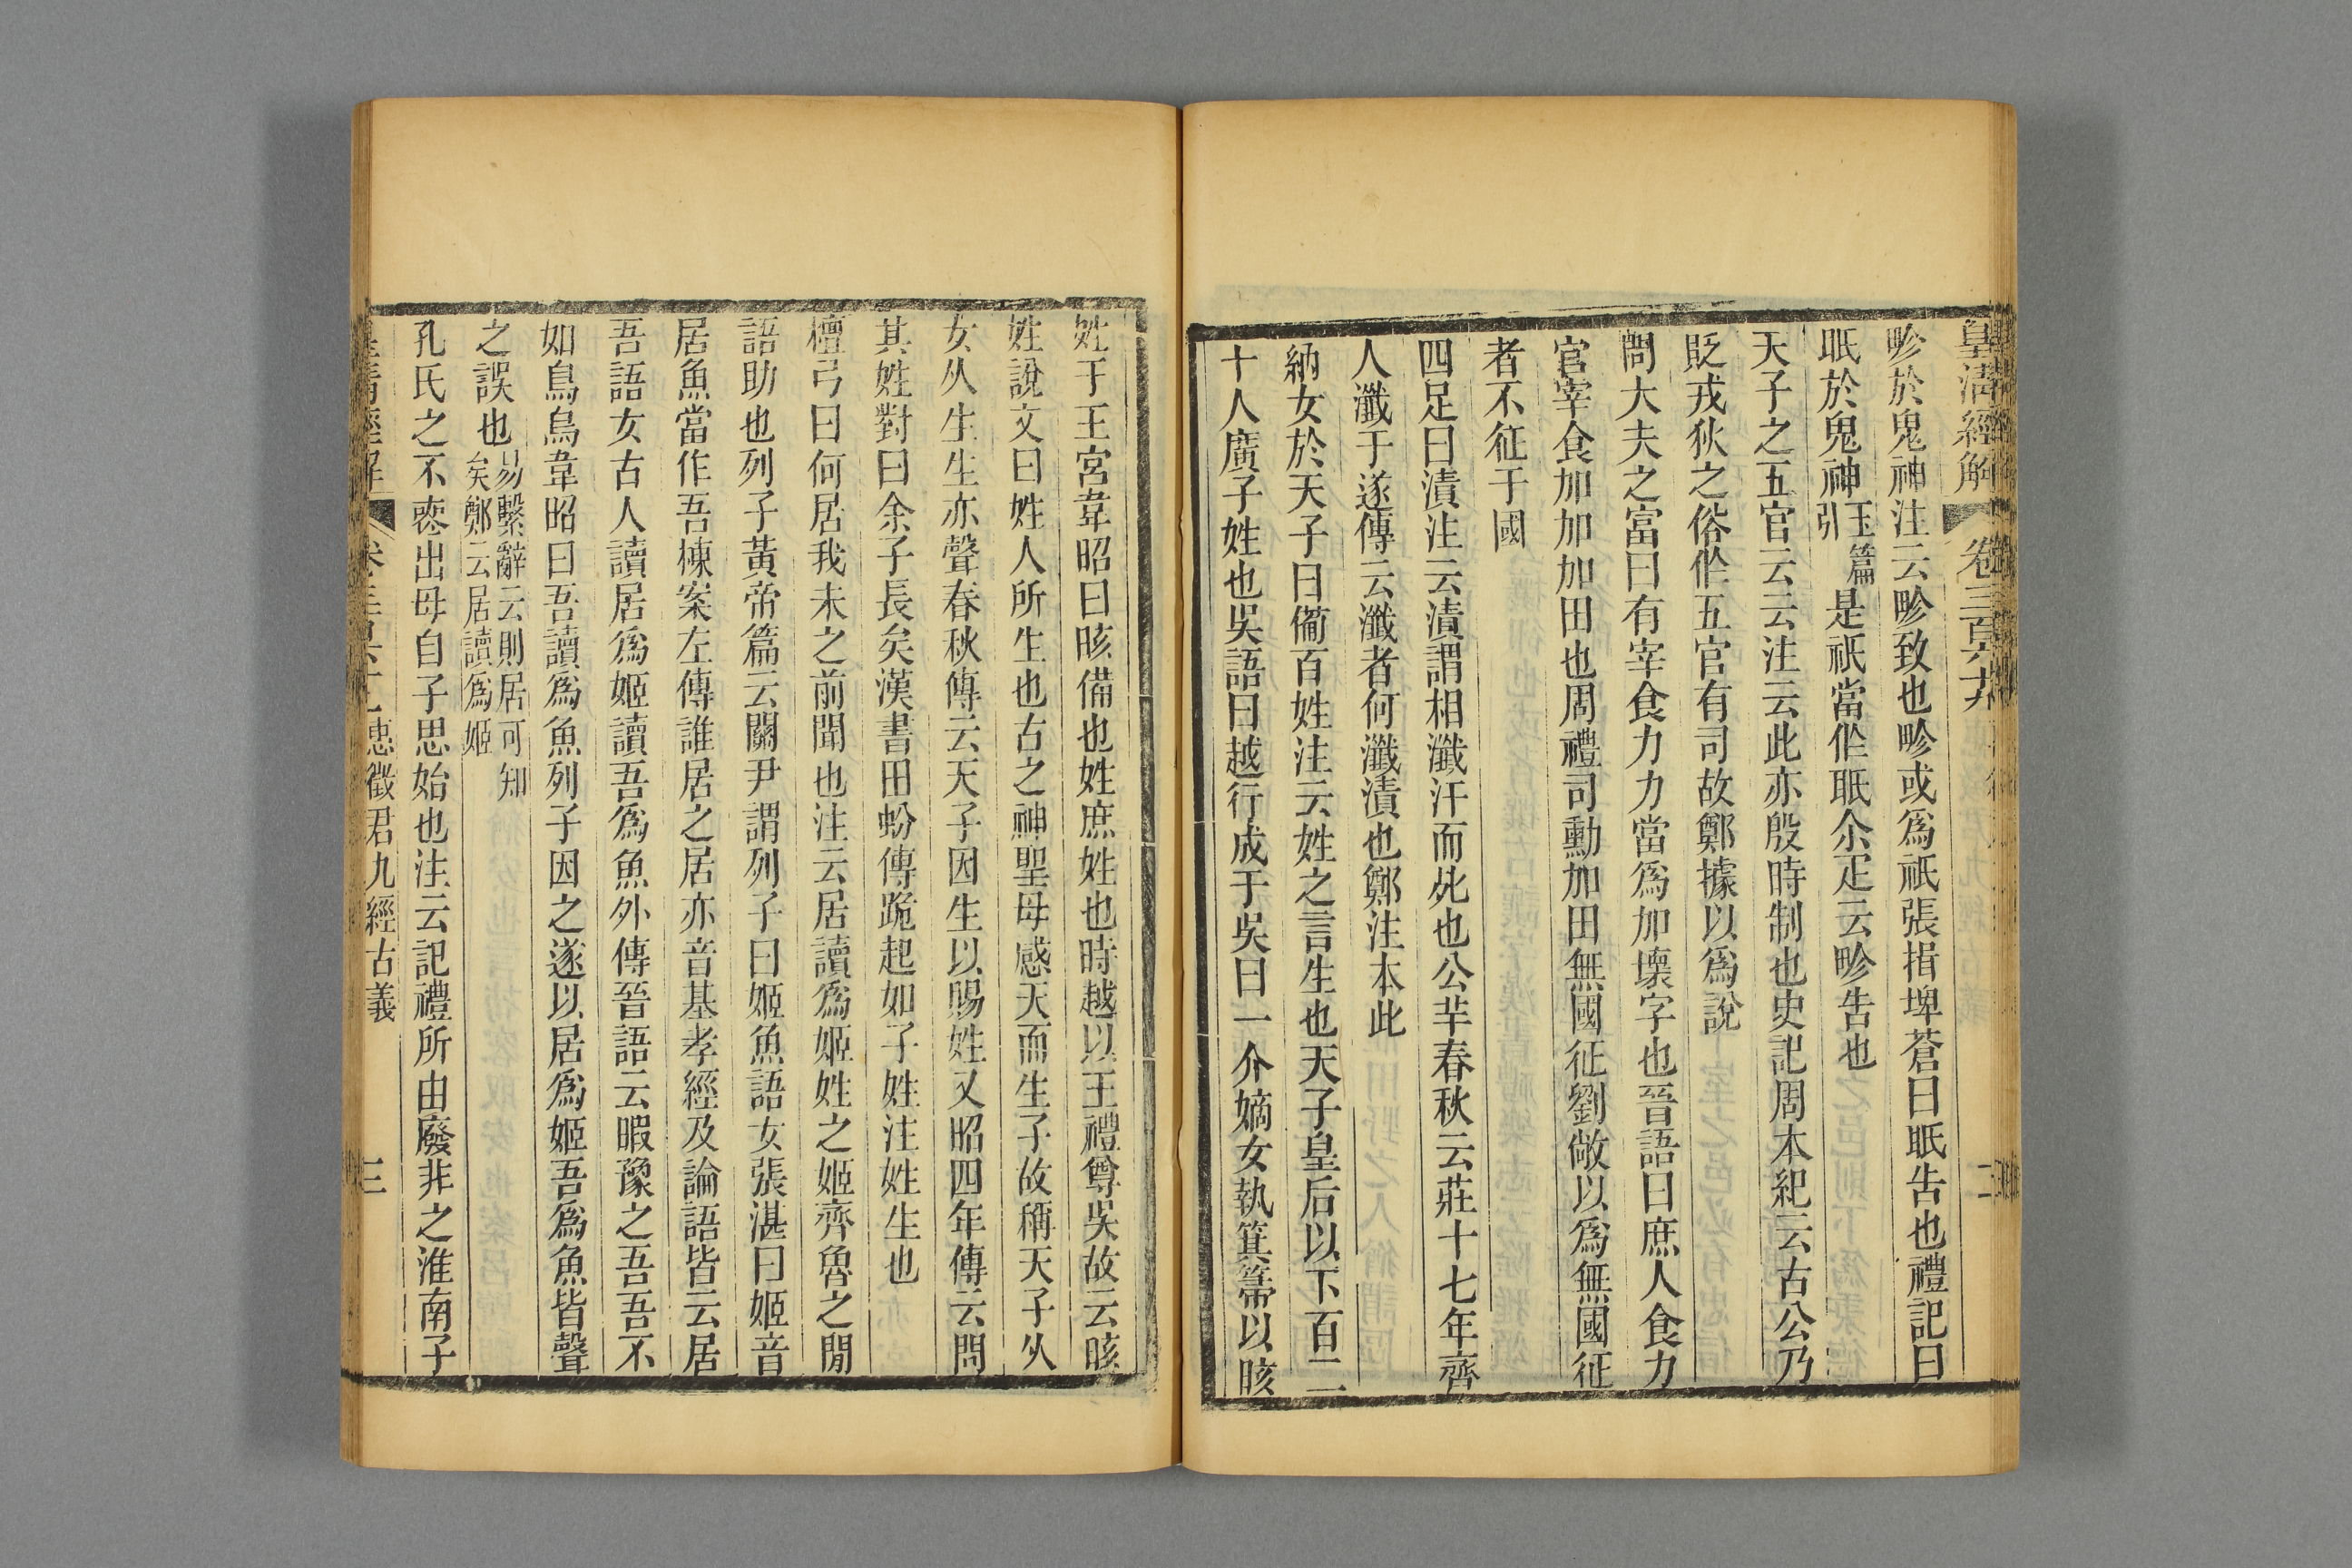 皇清經解 卷三百六十 二
畛於鬼神注云畛致也畛或爲祇張揖埤蒼曰眂告也禮記曰
眂於鬼神玉篇引是祇當作眂尒疋云畛告也
天子之五官云云注云此亦殷時制也史記周本紀云古公乃
貶戎狄之俗作五官有司故鄭據以爲說
問大夫之富曰有宰食力力當爲加壞字也晉語曰庶人食力
官宰食加加加田也周禮司勳加田無國征劉敞以爲無國征
者不征于國
四足曰漬注云漬謂相瀸汙而死也公羊春秋云莊十七年齊
人瀸于遂傳云瀸者何瀸漬也鄭注本此
納女於天子曰僃百姓注云姓之言生也天子皇后以下百二
十人廣子姓也吳語曰越行成于吳曰一介嫡女執箕箒以晐
姓于王宮韋昭曰晐備也姓庶姓也時越以王禮尊吳故云晐
姓說文曰姓人所生也古之神聖母感天而生子故稱天子从
女从生生亦聲春秋傳云天子因生以賜姓又昭四年傳云問
其姓對曰余子長矣漢書田蚡傳跪起如子姓注姓生也
檀弓曰何居我未之前聞也注云居讀爲姬姓之姬齊魯之閒
語助也列子黃帝篇云關尹謂列子曰姬魚語女張湛曰姬音
居魚當作吾棟案左傳誰居之居亦音基孝經及論語皆云居
吾語女古人讀居爲姬讀吾爲魚外傳晉語云暇豫之吾吾不
如鳥烏韋昭曰吾讀爲魚列子因之遂以居爲姬吾爲魚皆聲
之誤也易繫辭云則居可知矣鄭云居讀爲姬
孔氏之不喪出母自子思始也注云記禮所由廢非之淮南子
皇清經解 惠徵君九經古義 三